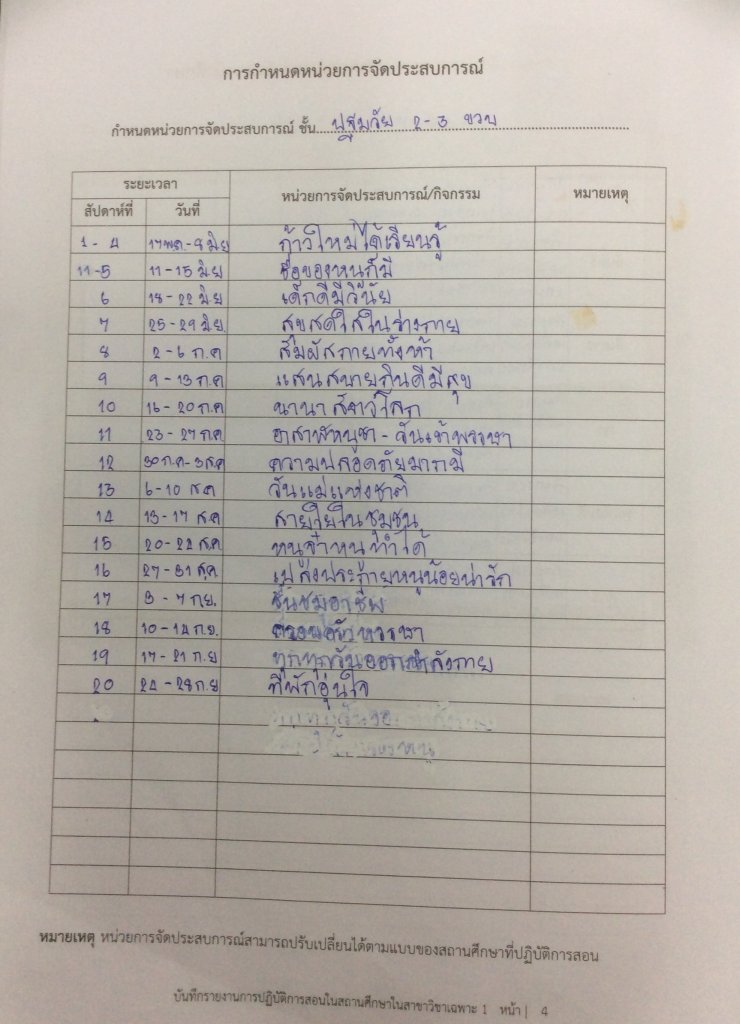 การกำหนดหน่วยการจัดประสบการณ์
กำหนดหน่วยการจัดประสบการณ์ ชั้น ปฐมวัย 2-3 ขวบ
ระยะเวลา หน่วยการจัดประสบการณ์/กิจกรรม หมายเหตุ
สัปดาห์ที่ วันที่
1 - 4 17 พค.-8 มิย ก้าวใหม่ได้เรียนรู้
11-5 11-15 มิย ชื่อของหนูก็มี
6 18-22 มิย เด็กดีมีวินัย
7 25-29 มิย. สุขสดใสในร่างกาย
8 2-6 ก.ค สัมผัสกายทั้งห้า
9 9-13 ก.ค แสนสบายกินดีมีสุข
10 16-20 ก.ค นานาสัตว์โลก
11 23-27 ก.ค อาสาฬหบูชา - วันเข้าพรรษา
12 30 ก.ค-3 ส.ค ความปลอดภัยมากมี
13 6-10 ส.ค วันแม่แห่งชาติ
14 13-17 ส.ค สายใยในชุมชน
15 20-24 ส.ค หนูจ๋าหนูทำได้
16 27-31 ส.ค เปล่งประกายหนูน้อยน่ารัก
17 3-7 ก.ย. ชื่นชมอาชีพ
18 10-14 ก.ย. ครอบครัวหรรษา
19 17-21 ก.ย ทุกทุกวันออกกำลังกาย
20 24-28 ก.ย ที่พักอุ่นใจ
หมายเหตุ หน่วยการจัดประสบการณ์สามารถปรับเปลี่ยนได้ตามแบบของสถานศึกษาที่ปฏิบัติการสอน
บันทึกรายงานการปฏิบัติการสอนในสถานศึกษาในสาขาวิชาเฉพาะ 1 หน้า | 4